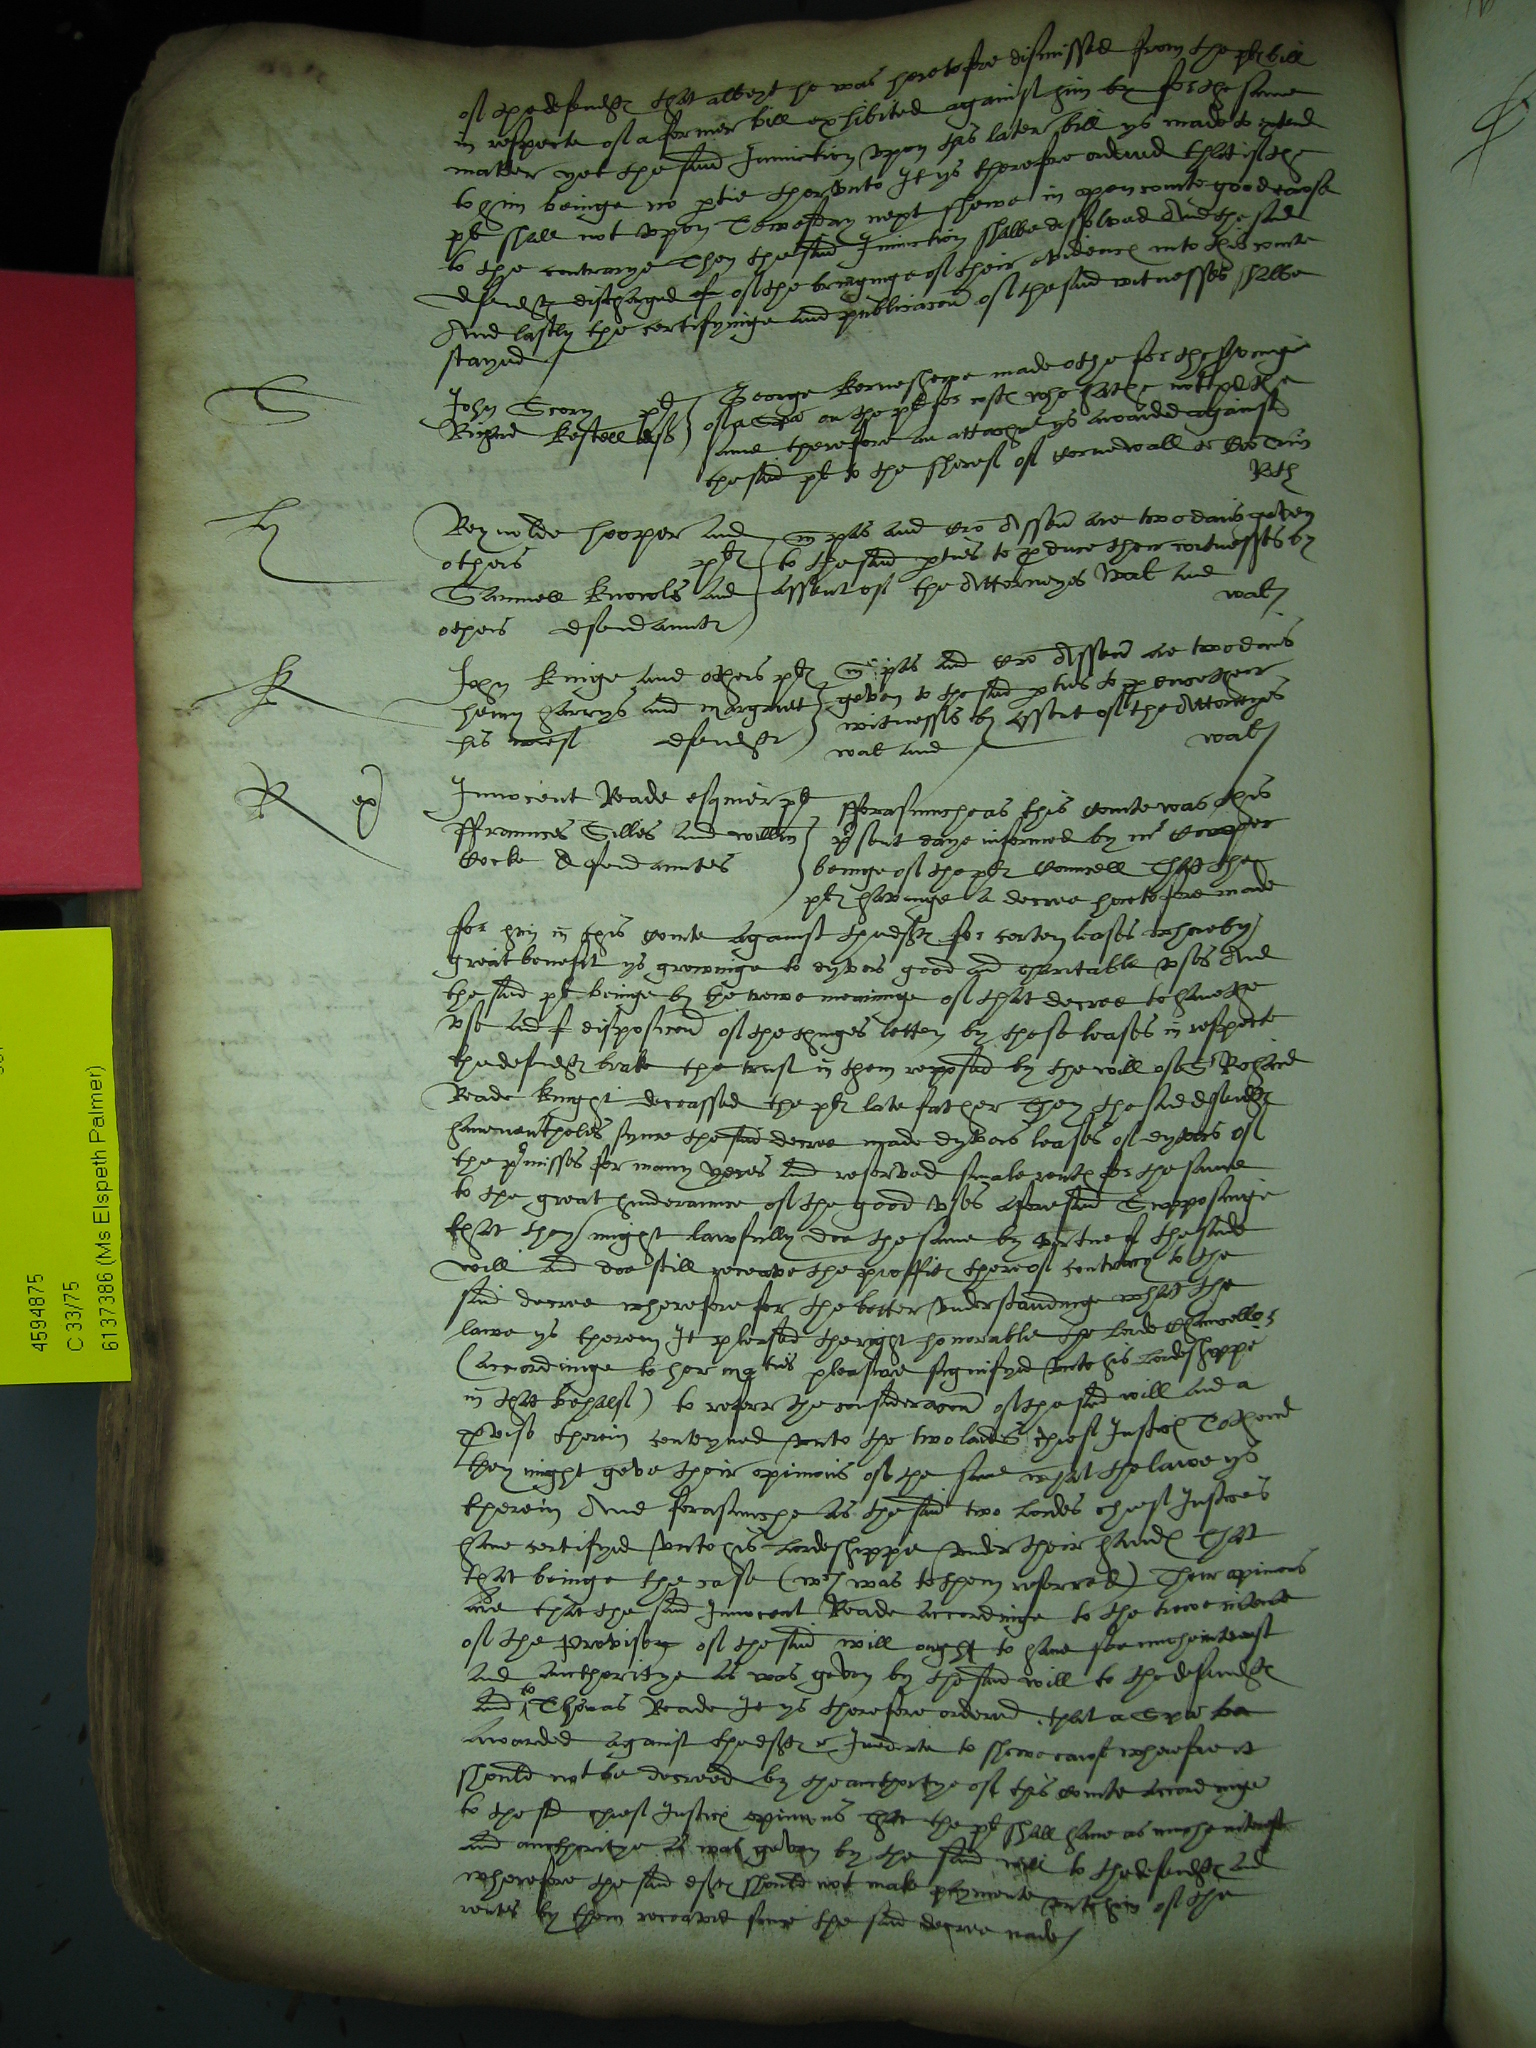 of the defendt that albeyt he was heretofore dismissed from the plt bill
in respecte of a former bill exhibited against him by for the same
matter yet the said Iniunction vpon this later bill ys made to extend
to him beinge no ptie thervnto It ys therefore ordered that if the
plt shall not vpon Tewesday next shewe in open courte good cause
to the contrarye Then the said Iniunction shalbe dissolved And the said
defendt discharged of of the bringinge of their evidence into this courte
And lastly the certifyinge and publicacon of the said witnesses shalbe
stayed
S
John Scory plt
Richard Kestell deft
George Kerneshewe made othe for the servinge
of a Spa on the plt for cost who hathe not paid the
same therefore an attachmt ys awarded against
the said plt to the shereff of Cornewall
Rth
H
Reynolde Hooper and
others plts
Samuell Knowols and
others defendauntes
in plas and are two dais geven
to the said pties to pduce their wittnesses by
assent of the Attorneyes Wal and
wal
K
John Kinge and others plts
Henry Harrys and Margaret
his wief defendts
in plas and are two dais
geven to the said pties to pduce their
witnesses by assent of the Attorneyes
wal and
wal
R
ex
Innocent Reade esquier plt
Ffraunces Gilles and Willm
Cocke defendauntes
Fforasmuche as this Courte was this
psent daye informed by mr Cowper
beinge of the plts Councell That the
plt havinge a decree heretofore made
for him in this Courte against thedefts for certen leases whereby
great benefit ys growinge to dyvers good and charitable vses And
the said plt beinge by the trewe meaninge of that decree to have the
vse and disposicon of the thinges letten by those leases in respecte
the defendts brake the trust in them reposed by the will of Sr Richard
Reade knight deceassed the plts late father Then the said defendts
have nevertheles synce the said decree made dyvers leases of dyvers of
the pmisses for many yeres and reserved smale rentes for the same
to the great hinderaunce of the good vses aforesaid Supposinge
that they might lawfully doe the same by vertue of the saide
will and doe still receave the proffites thereof contrary to the
said decree wherefore for the better vnderstandinge what the
lawe ys therein It pleased the right honorable the Lorde Chancellor
(accordinge to her maties pleasure signifyed vnto his Lordshippe
in that behalf) to referr the consideracon of the said will and a
pviso therein conteyned vnto the two lordes chief Iustices To thend
they might geve their opinions of the same what the lawe ys
therein And forasmuche as the said two Lordes chief Iustices
have certifyed vnto his Lordeshippe vnder their handes That
that beinge the case (wch was to them referred) Their opinions
are that the said Innocent Reade accordinge to the trewe intente
of the Provisoe of the said will ought to have soe muche interest
and aucthoritye as was geven by the said will to the defendts
and to Thomas Reade It ys therefore ordered that a Spa be
awarded against thedefts to shewe cause wherefore it
should not be decreed by the aucthoritye of this Courte accordinge
to the sd chief Iustices opinions That the plt shall have as muche interest
and aucthoritye as was geven by the said will to the defendts and
wherefore the said defts should not make paymente vnto him of the
rentes by them receaved since the said decree made
4594875
C 33/75
61137386 (Ms Elspeth Palmer)